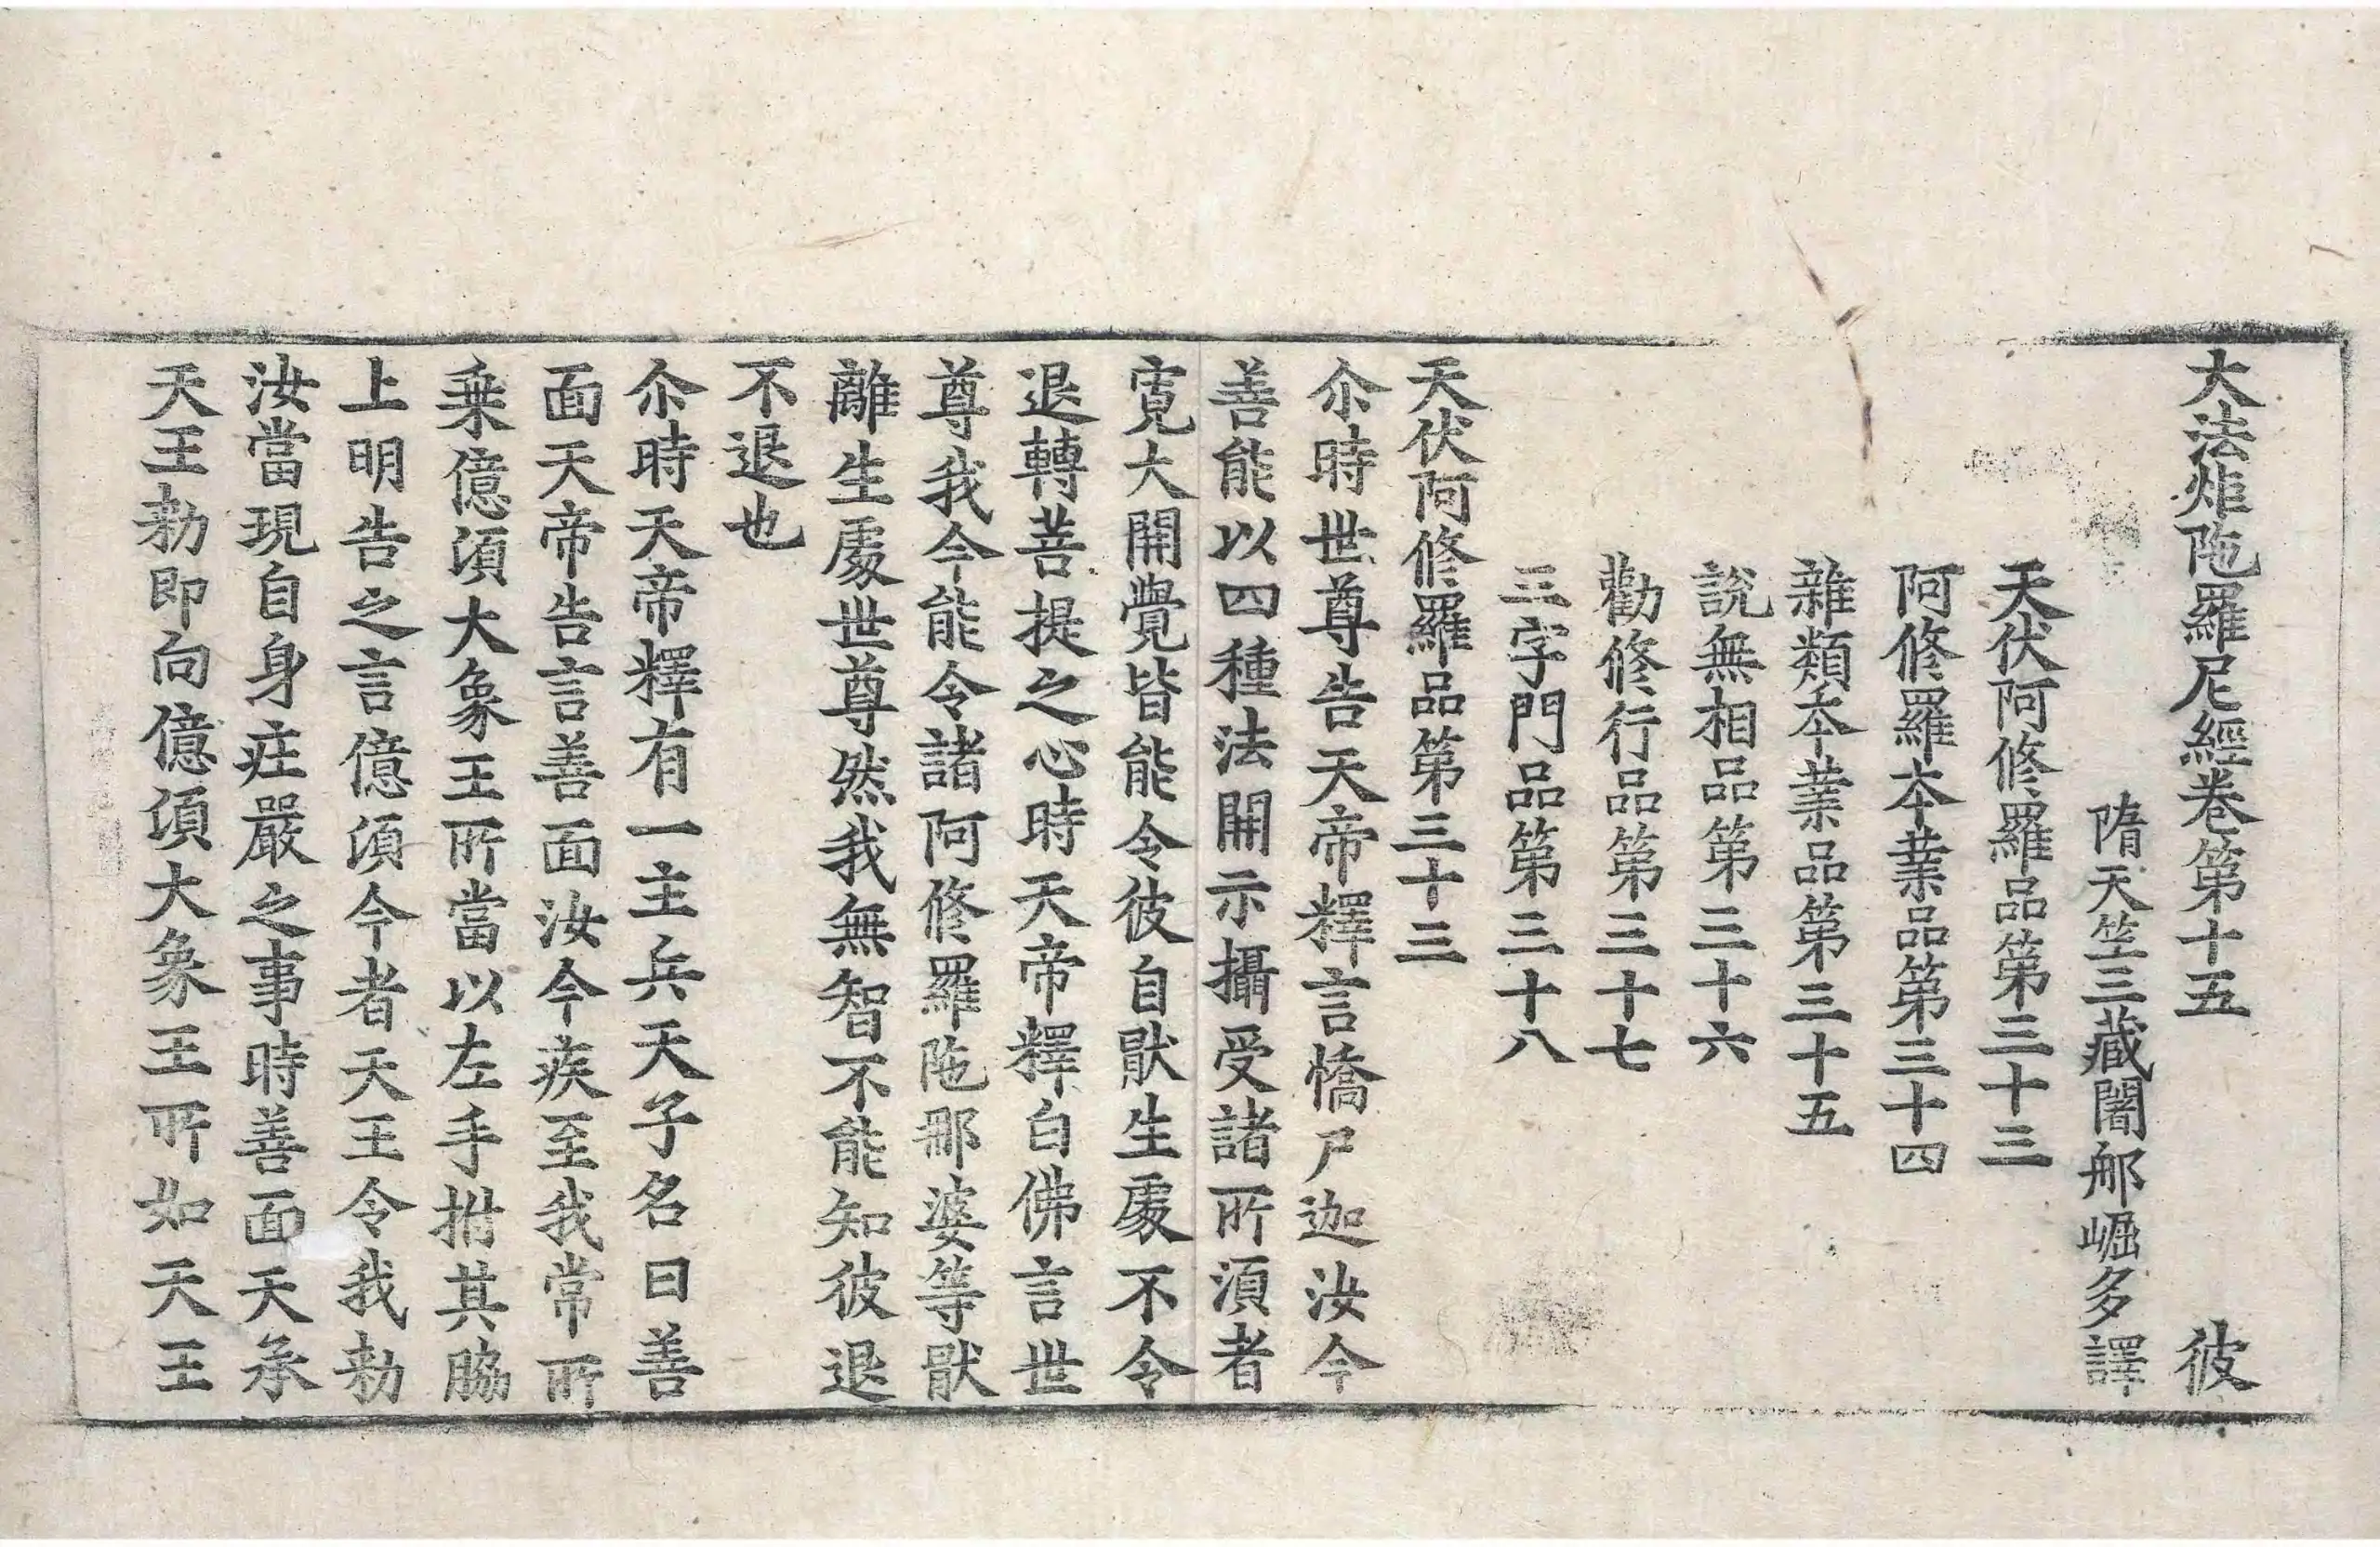 大法炬陁羅尼經卷第十五　彼
隋天竺三藏闍那崛多譯
天伏阿修羅品第三十三
阿修羅本業品第三十四
雜類本業品第三十五
說無相品第三十六
勸修行品第三十七
三字門品第三十八
天伏阿修羅品第三十三
尒時世尊告天帝釋言憍尸迦汝今
善能以四種法開示攝受諸所湏者
寬大開覺皆能令彼自猒生處不令
退轉菩提之心時天帝釋白佛言世
尊我今能令諸阿修羅陁那婆等猒
離生處世尊然我無智不能知彼退
不退也
尒時天帝釋有一主兵天子名曰善
面天帝告言善面汝今疾至我常所
乗億湏大象王所當以左手拊其脇
上明告之言億湏今者天王令我勑
汝當現自身庄嚴之事時善面天承
天王勑即向億湏大象王所如天王